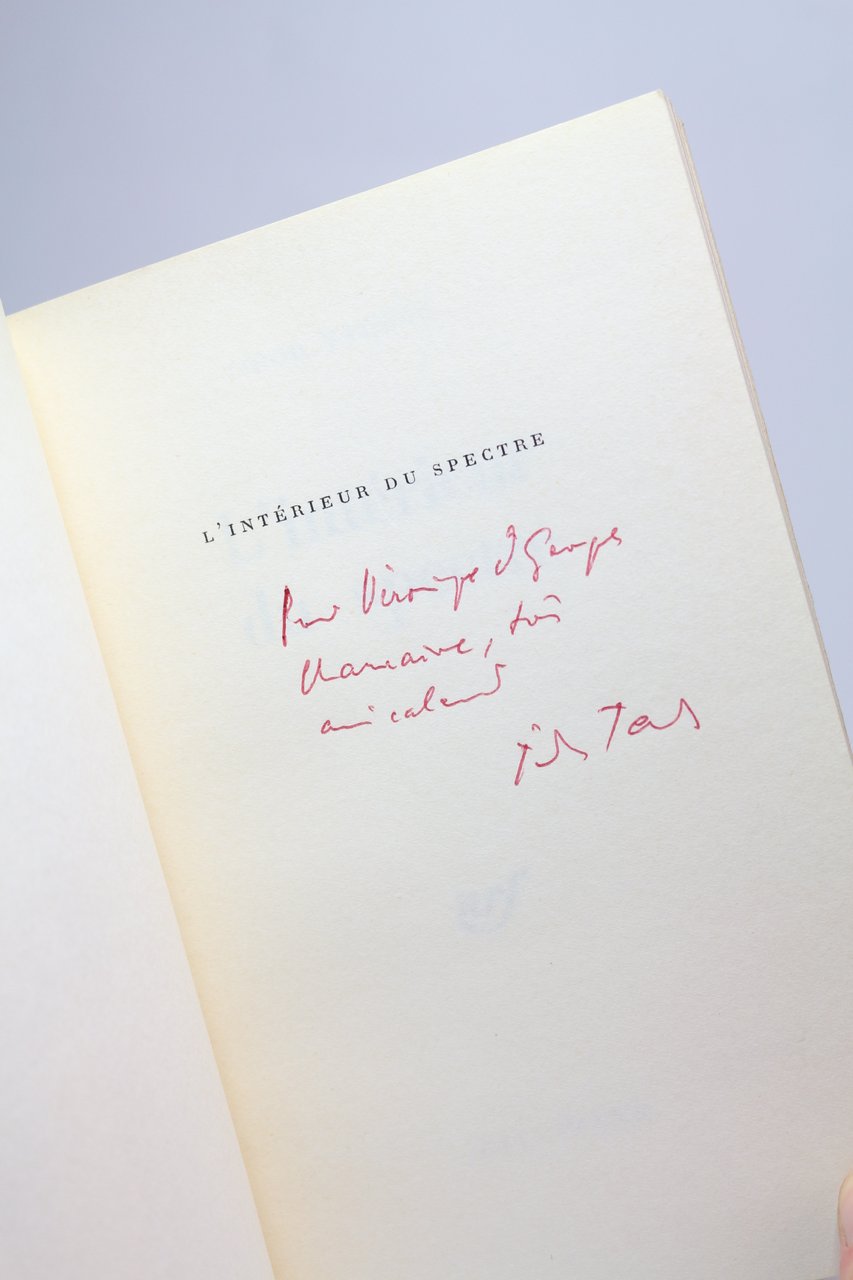 L'INTÉRIEUR DU SPECTRE
Pour Véronique et Georges
Charaire, très
amicalement